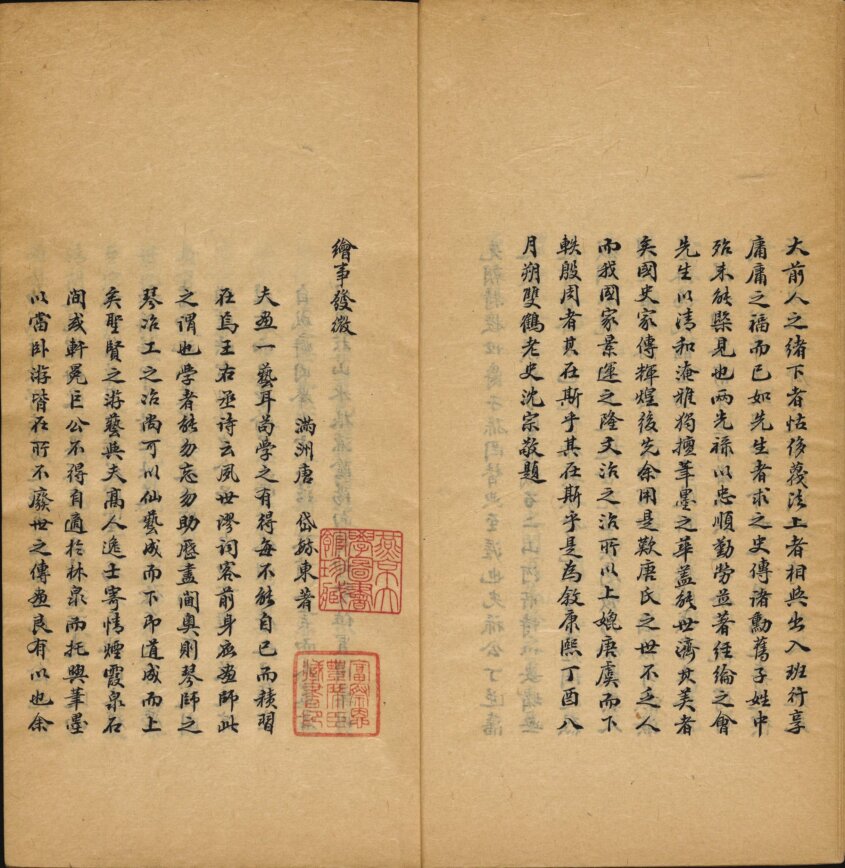 大前人之緒下者怙侈蔑法上者相與出入班行享
庸庸之福而已如先生者求之史傳諸勳舊子姓中
殆未能槩見也兩先祿以忠順勤勞並著經綸之會
先生以清和淹雅獨擅筆墨之華蓋能世濟其美者
矣國史家傳輝煌後先余用是歎唐氏之世不乏人
而我國家景運之隆文治之洽所以上媲唐虞而下
軼殷周者其在斯乎其在斯乎是為敘康熙丁酉八
月朔雙鶴老史沈宗敬題
繪事發微
滿洲唐岱毓東著
夫畫一藝耳苟學之有得每不能自已而積習
在焉王右丞詩云夙世謬詞客前身應畫師此
之謂也學者能勿忘勿助歷盡閫奧則琴師之
琴冶工之冶尚可以仙藝成而下即道成而上
矣聖賢之游藝與夫高人逸士寄情煙霞泉石
間或軒冕巨公不得自適於林泉而托興筆墨
以當臥游皆在所不廢世之傳畫良有以也余
燕京大
學圖書
館珍藏
富察恩
豐席臣
藏書印